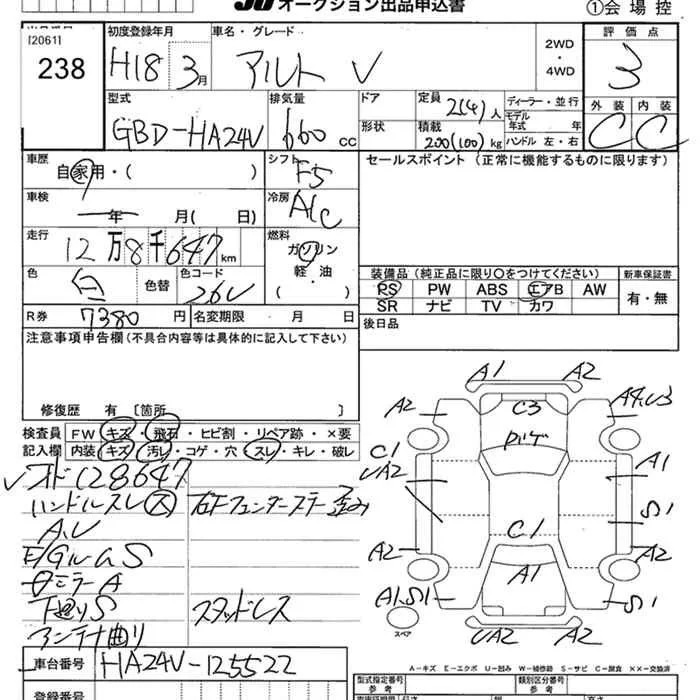 JU オークション出品申込書
①会場控
[20611
初度登録年月
車名・グレード
2WD
・
4WD
評価点
238
H18 3月
アルト V
3
型式
排気量
ドア
定員
2(4)人
ディーラー・並行
外装 内装
GBD-HA24V
660 CC
形状
積載
200(100)kg
モデル年式 年
ハンドル 左・右
C C
車歴
自家用・( )
シフト
F5
セールスポイント(正常に機能するものに限ります)
車検
年 月( 日)
冷房
A/C
走行
12万8千647km
燃料
ガソリン
軽・油
( )
色
白
色替
色コード
26U
装備品(純正品に限り○をつけてください)
新車保証書
PS PW ABS エアB AW
有・無
SR ナビ TV カワ
R券 7380円
名変期限 月 日
後日品
注意事項申告欄(不具合内容等は具体的に記入して下さい)
修復歴 有 〔箇所 〕
検査員記入欄
FW キズ・飛石・ヒビ割・リペア跡・×要
内装 キズ・汚レ・コゲ・穴・スレ・キレ・破レ
オド128647
ハンドルスレ ス 右Fフェンダーステー歪み
A.U
E/Gルーム S
ミラーA
下廻りS スタッドレス
アンテナ曲り
車台番号 HA24V-125522
登録番号
A1 A2
A2 C3 A4.U3
C1
UA2 A1
C1 S1
A2 A2
A1
A1.S1 S1
スペア UA2 A2
A－キズ E－エクボ U－凹み W－補修跡 S－サビ C－腐食 ××－交換済
型式指定番号
参考
類別区分番号
参考